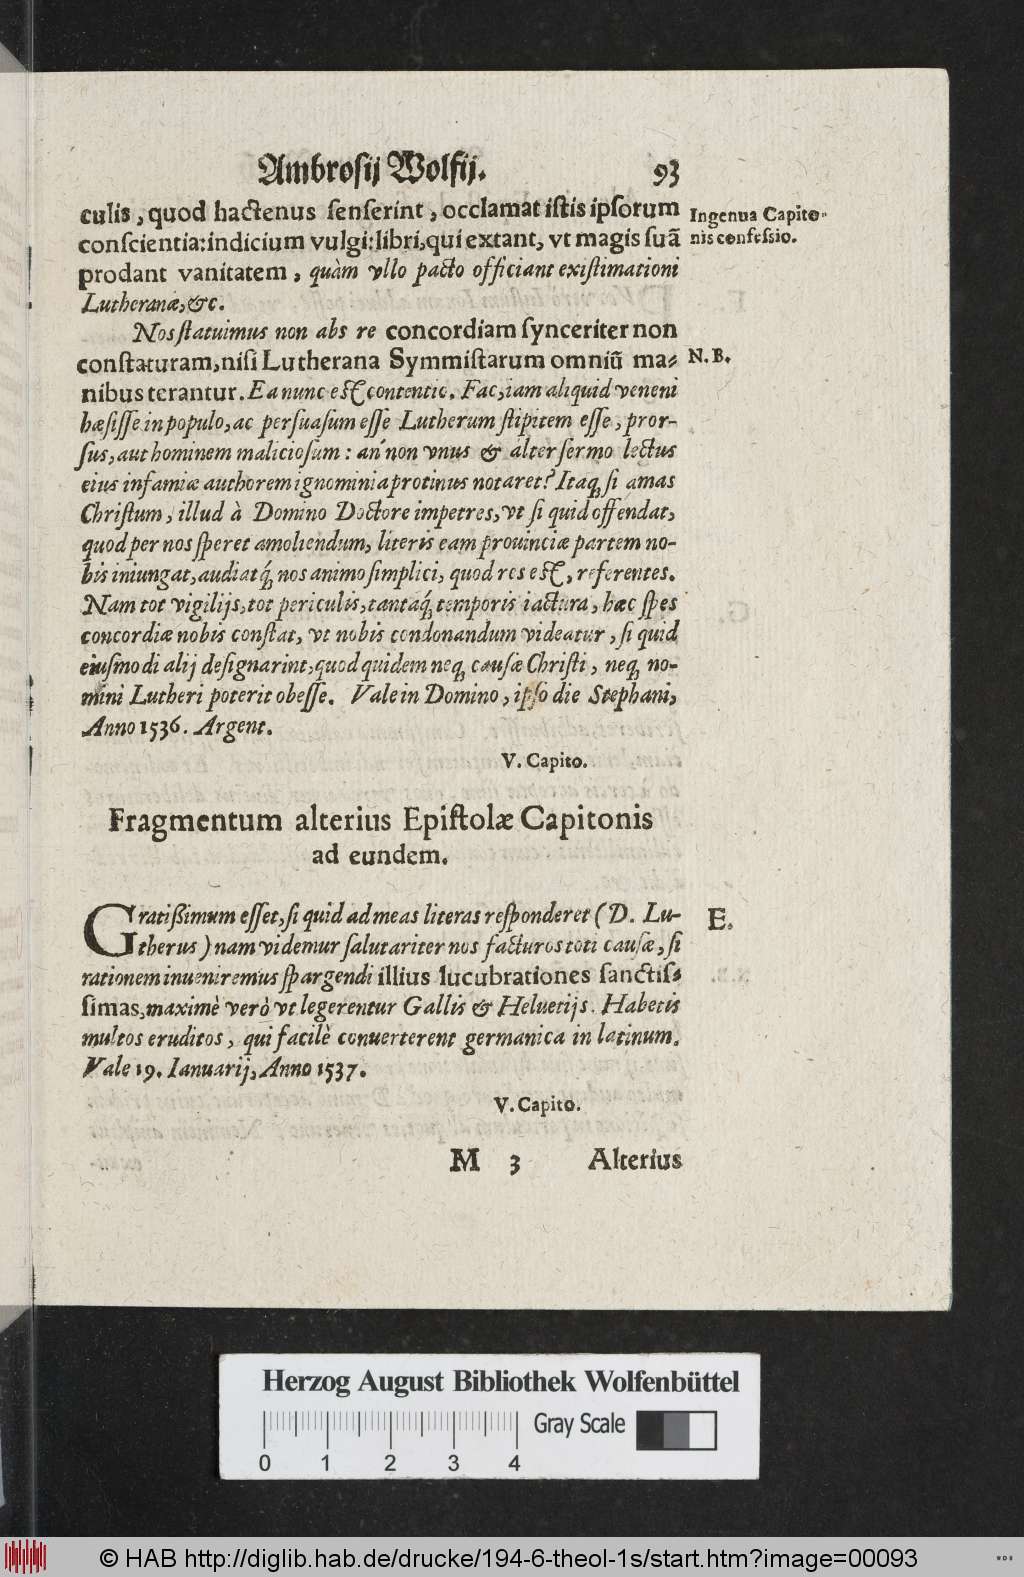 Ambrosij Wolfij. 93
culis, quod hactenus senserint, occlamat istis ipsorum
Ingenua Capito-
conscientia: indicium vulgi: libri, qui extant, vt magis suã
nis confessio.
prodant vanitatem, quàm vllo pacto officiant existimationi
Lutheranæ, &c.
Nos statuimus non abs re concordiam synceriter non
constaturam, nisi Lutherana Symmistarum omniũ ma-
N. B.
nibus terantur. Ea nunc est contentio. Fac, iam aliquid veneni
hæsisse in populo, ac persuasum esse Lutherum stipitem esse, pror-
sus, aut hominem maliciosum: an non vnus & alter sermo lectus
eius infamiæ authorem ignominia protinus notaret? Itaq; si amas
Christum, illud à Domino Doctore impetres, vt si quid offendat,
quod per nos speret amoliendum, literis eam prouinciæ partem no-
bis iniungat, audiatq́; nos animo simplici, quod res est, referentes.
Nam tot vigilijs, tot periculis, tantaq́; temporis iactura, hæc spes
concordiæ nobis constat, vt nobis condonandum videatur, si quid
eiusmodi alij designarint, quod quidem neq; causæ Christi, neq; no-
mini Lutheri poterit obesse. Vale in Domino, ipso die Stephani,
Anno 1536. Argent.
V. Capito.
Fragmentum alterius Epistolæ Capitonis
ad eundem.
Gratißimum esset, si quid ad meas literas responderet (D. Lu-
E.
therus) nam videmur salutariter nos facturos toti causæ, si
rationem inueniremus spargendi illius lucubrationes sanctis-
simas, maximè verò vt legerentur Gallis & Heluetijs. Habetis
multos eruditos, qui facilè conuerterent germanica in latinum.
Vale 19. Ianuarij, Anno 1537.
V. Capito.
M 3 Alterius
Herzog August Bibliothek Wolfenbüttel
Gray Scale
0 1 2 3 4
© HAB http://diglib.hab.de/drucke/194-6-theol-1s/start.htm?image=00093